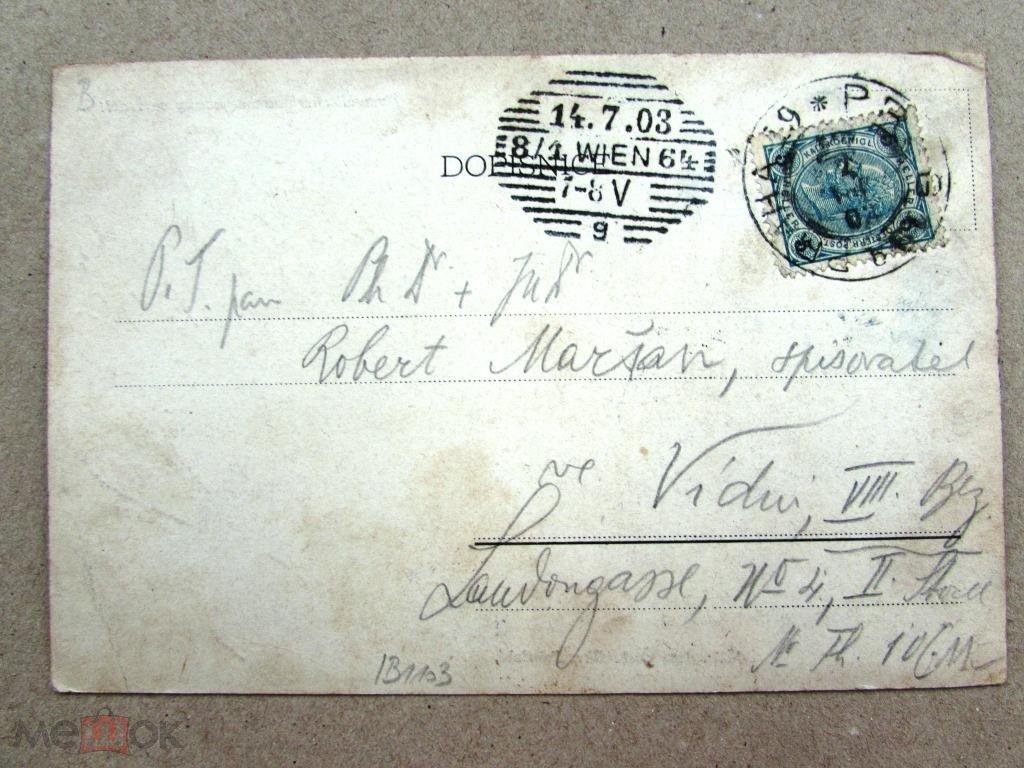 B
14.7.03
8/1 WIEN 64
7-8 V
9
DOPISNICE
P. T. pan Ph Dr + JuDr
Robert Maršan, spisovatel
ve Vídni, VIII. Bez.
Laudongasse, No 4, II. Stock
Th. 10
IB1103
мешок